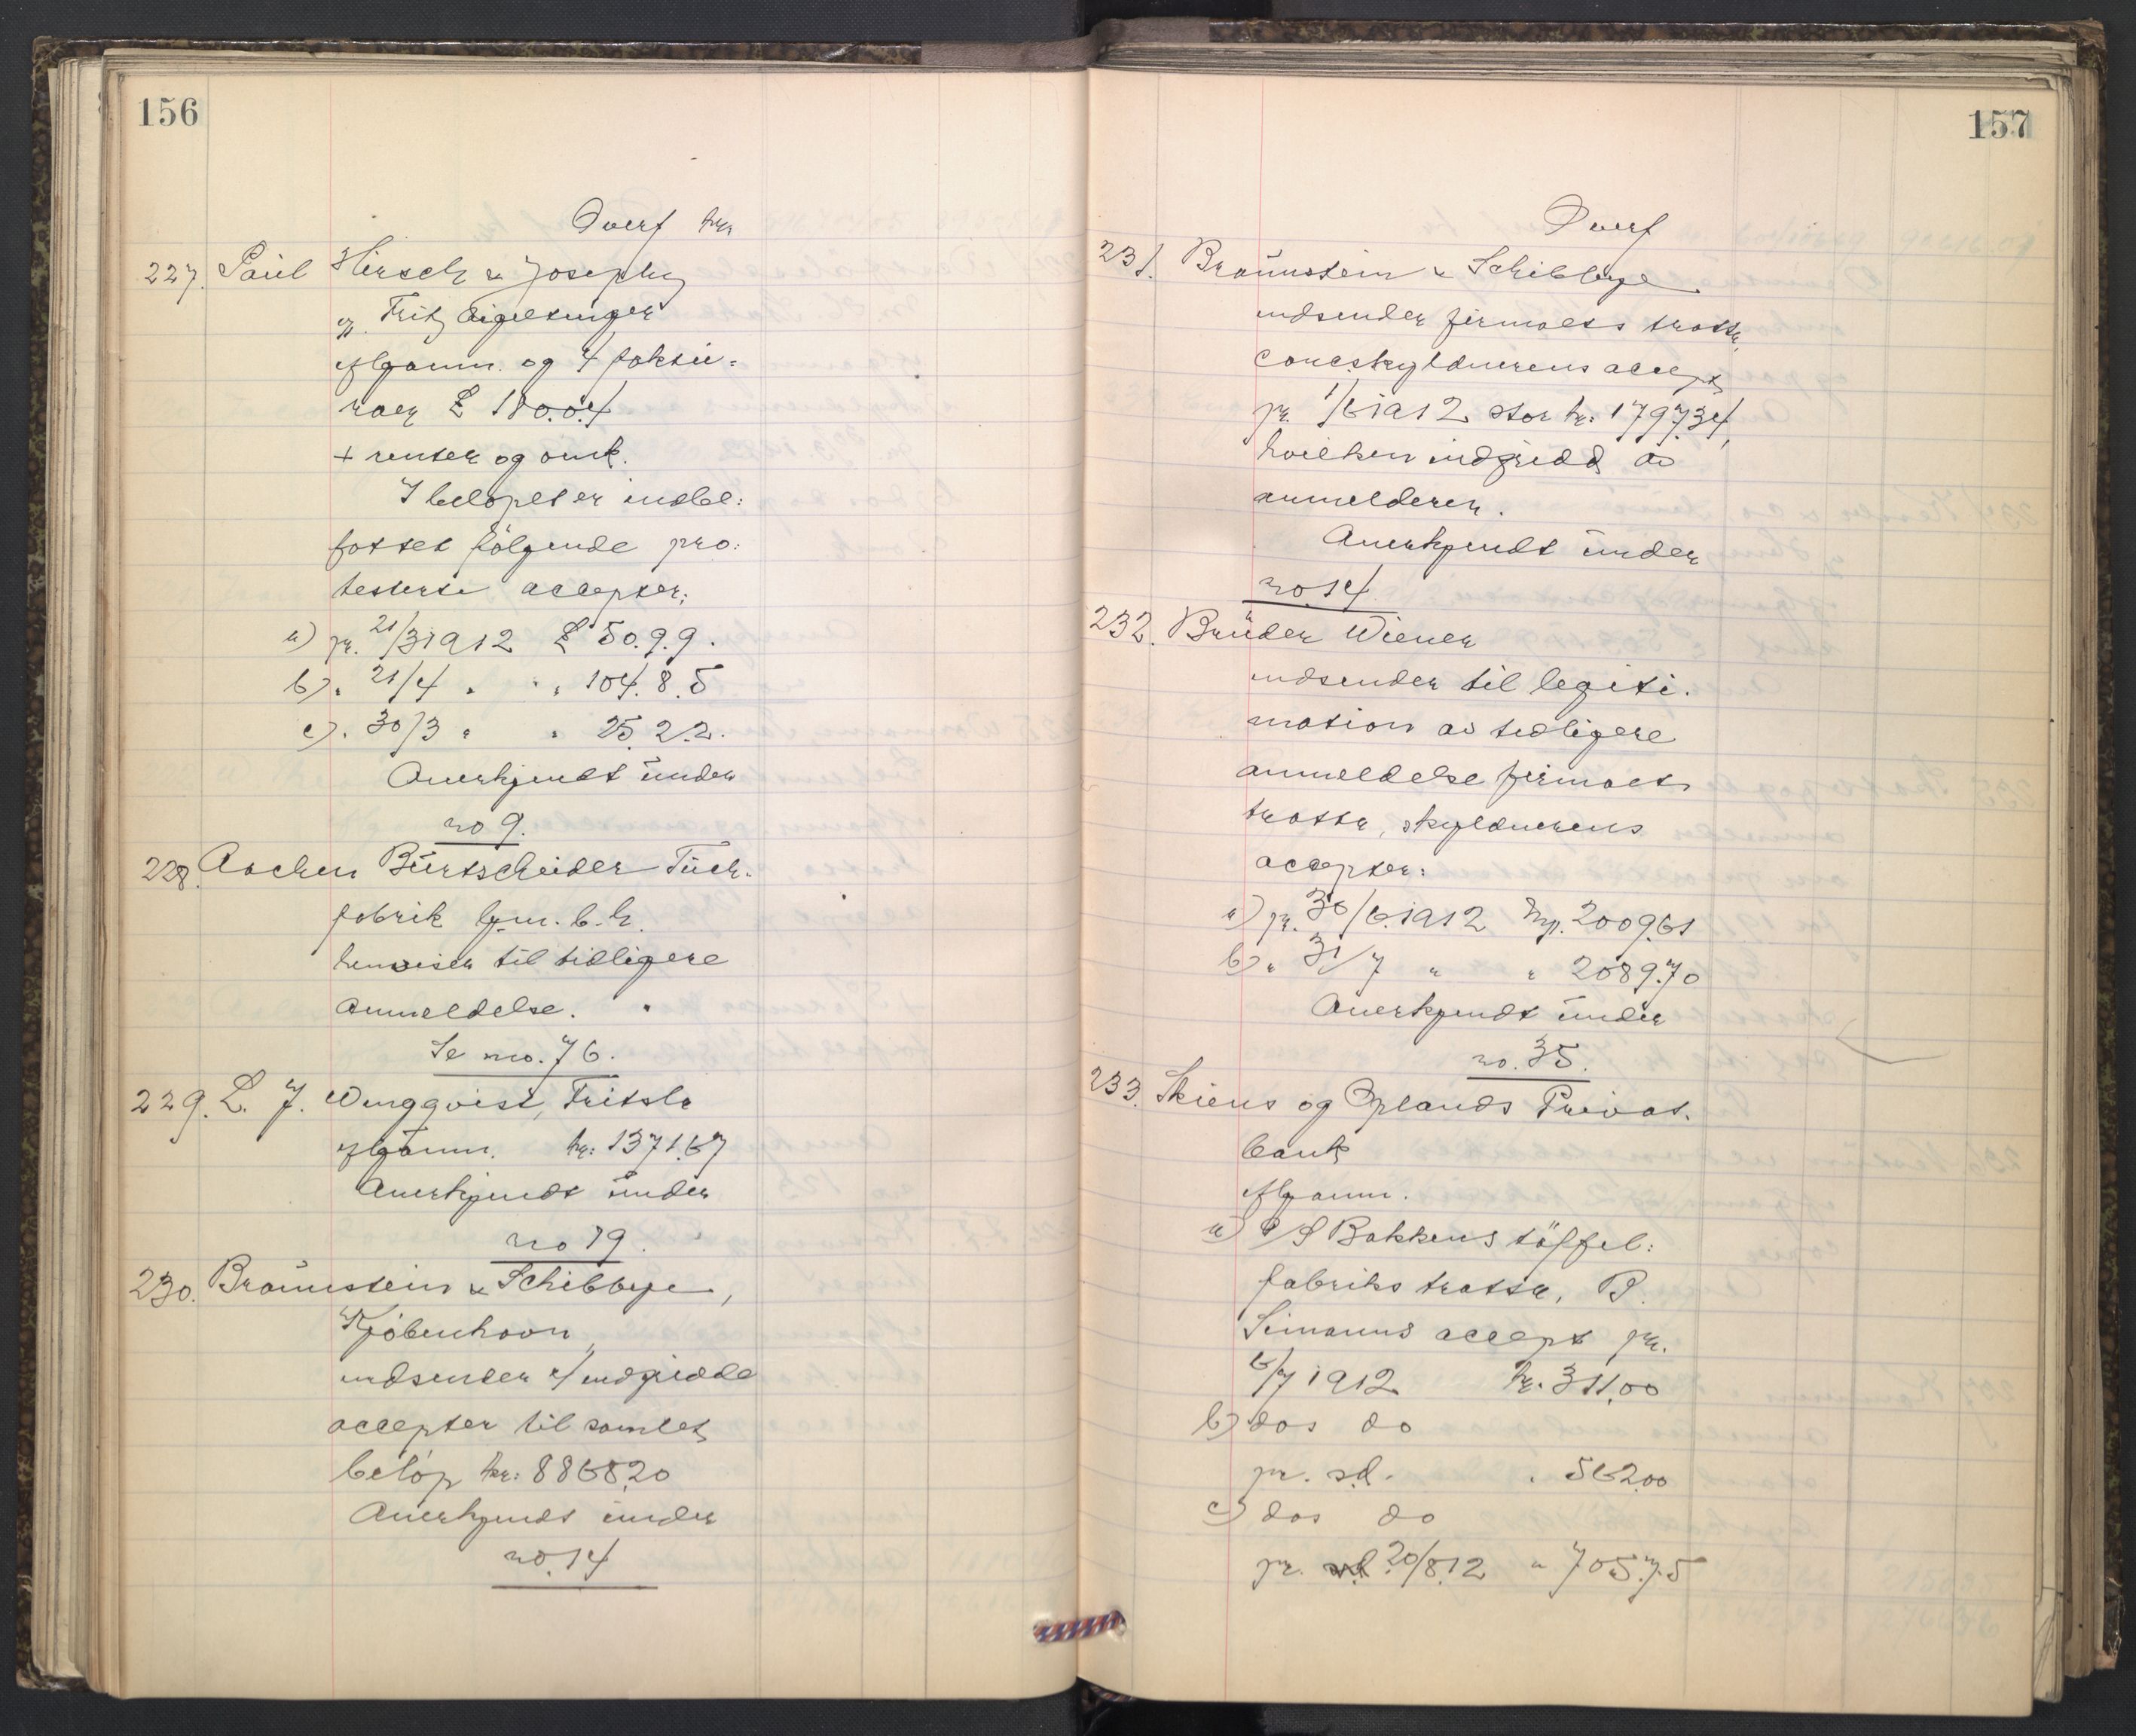 156
Overf kr.
227. Paul Hirsch & Josephy
v. Fritz
iflg anm. og 4 faktu=
raer £ 180.0.4
+ renter og omk.
I beløpet er indbe:
fattet følgende pro:
testerte accepter:
a) pr. 21/3 1912 £ 50.9.9.
b) " 21/4 " " 104.8.5
c) " 30/3 " " 25.2.2.
Anerkjendt under
no 9.
228. Aachen Burtscheider Tuch.
fabrik G.m.b.h.
henviser til tidligere
anmeldelse.
Se no. 76.
229. L. J. Wingqvist, Fritsla
iflg anm. kr: 1371.67
Anerkjendt under
no 19.
230. Braunstein & Schibbye,
Kjøbenhavn,
indsender 4 indfriedde
accepter til samlet
beløp kr: 8868.20
Anerkjendt under
no. 14
157
Overf
231. Braunstein & Schibbye
indsender firmaets tratte,
concskyldnerens accept
pr. 1/6 1912 stor kr: 1797.34,
hvilken indfridd av
anmelderen.
Anerkjendt under
no 14.
232. Brüder Wiener
indsender til legiti.
mation av tidligere
anmeldelse firmaets
tratter, skyldnerens
accepter:
a) pr. 30/6. 1912 Mp. 2009.61
b) " 31/7 " " 2089.70
Anerkjendt under
no. 35.
233. Skiens og Oplands Privat.
bank
iflg anm.
a) A/S Bakkens tøffel:
fabriks tratte, B.
Simanns accept pr.
6/7 1912 kr. 311.00
b) das do
pr. s.d. " 562.00
c) das do
pr. 20/8.12 " 705.75